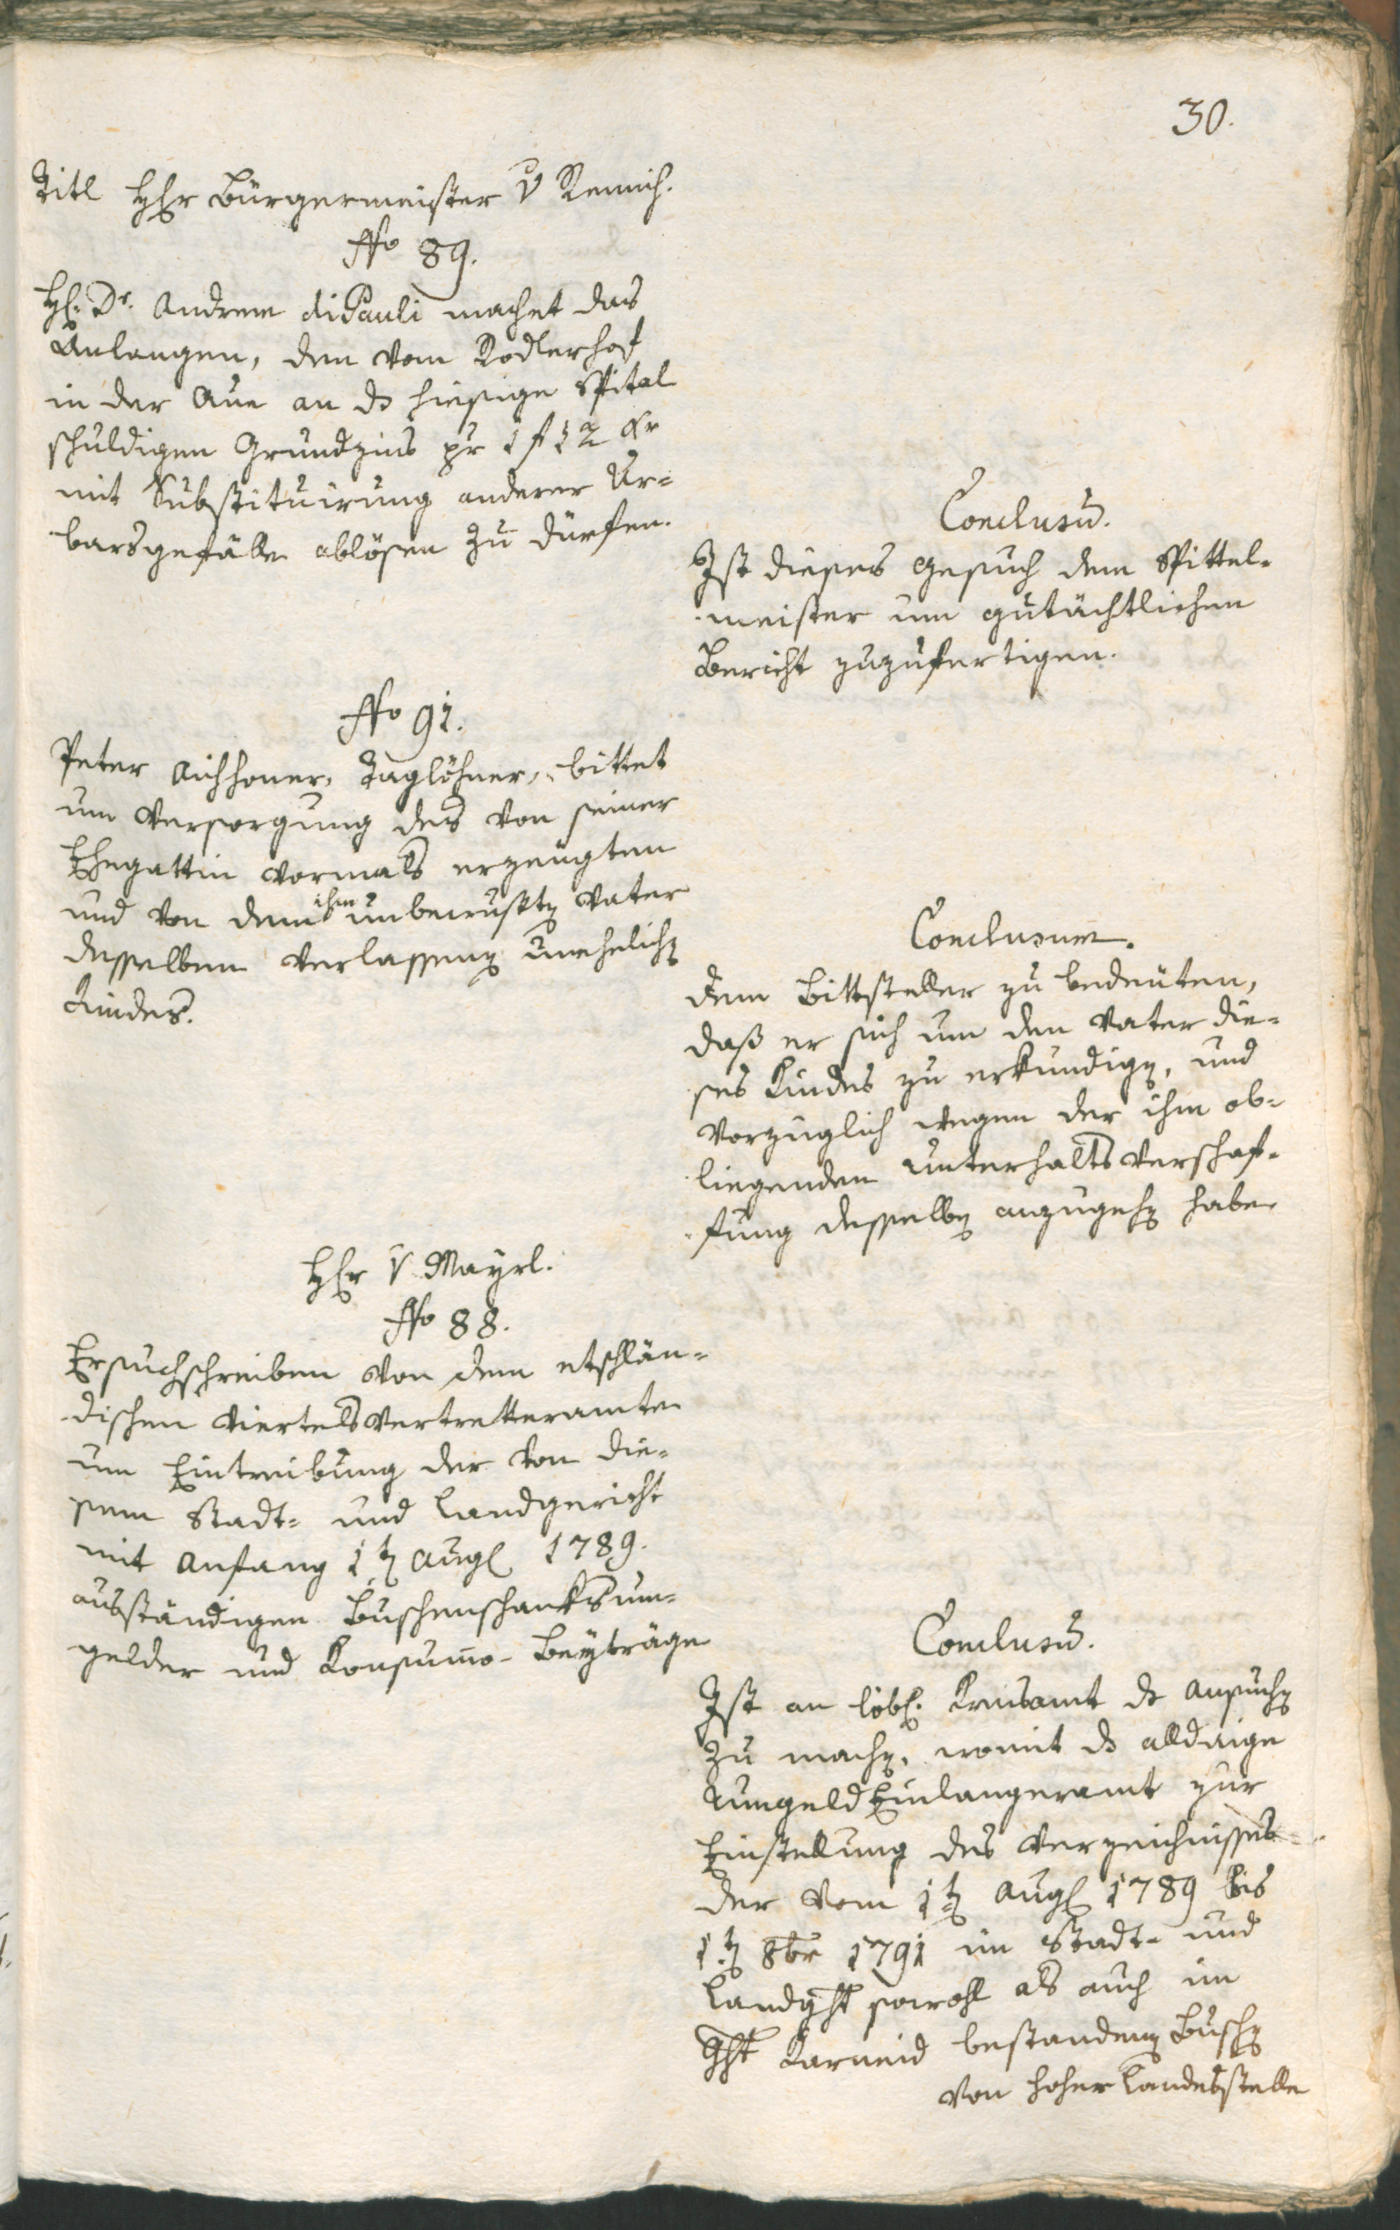 30.
Titl HEr Bürgermeister v Remich.
No 89.
H. Dr. Andreen di Pauli machet das
Anlangen, den vom Rodlerhof
in der Aue an ds hiesige Spital
schuldigen Grundzins pr 1 f 12 kr
mit Substituirung anderer Ur=
barsgefälle ablösen zu dürfen.
Conclusū.
Ist dieses Gesuch dem Spittel=
meister um gutächtlichen
Bericht zuzufertigen.
No 91.
Peter Aichhoner, Taglöhner, bittet
um Versorgung des von seiner
Ehegattin vormals erzeugten
und von dem ihm unbewusten Vater
desselben verlassenen unehelichen
Kindes.
Conclusum.
dem Bittsteller zu bedeuten,
daß er sich um den Vater die=
ses Kindes zu erkundigen, und
vorzüglich wegen der ihm ob=
liegenden Unterhalts Verschaf=
fung desselben anzugehen habe
HEr v Mayrl.
No 88.
Ersuchschreiben von dem etschlän=
dischen Viertels Vertretteramte
um Eintreibung der von die=
sem Stadt= und Landgericht
mit Anfang 1ten Augl 1789.
ausständigen Buschenschanksum=
gelder und Konsumo- Beyträge
Conclusū.
Ist an löbl. Kreisamt ds Ansuchen
zu machen, womit ds alldaige
Umgeld Einlangeramt zur
Einstellung des Verzeichnisses
der vom 1ten Augl 1789 bis
1ten 8br 1791 im Stadt- und
Landght sowohl als auch im
Ght Karneid bestandenen Buschen
von hoher Landesstelle